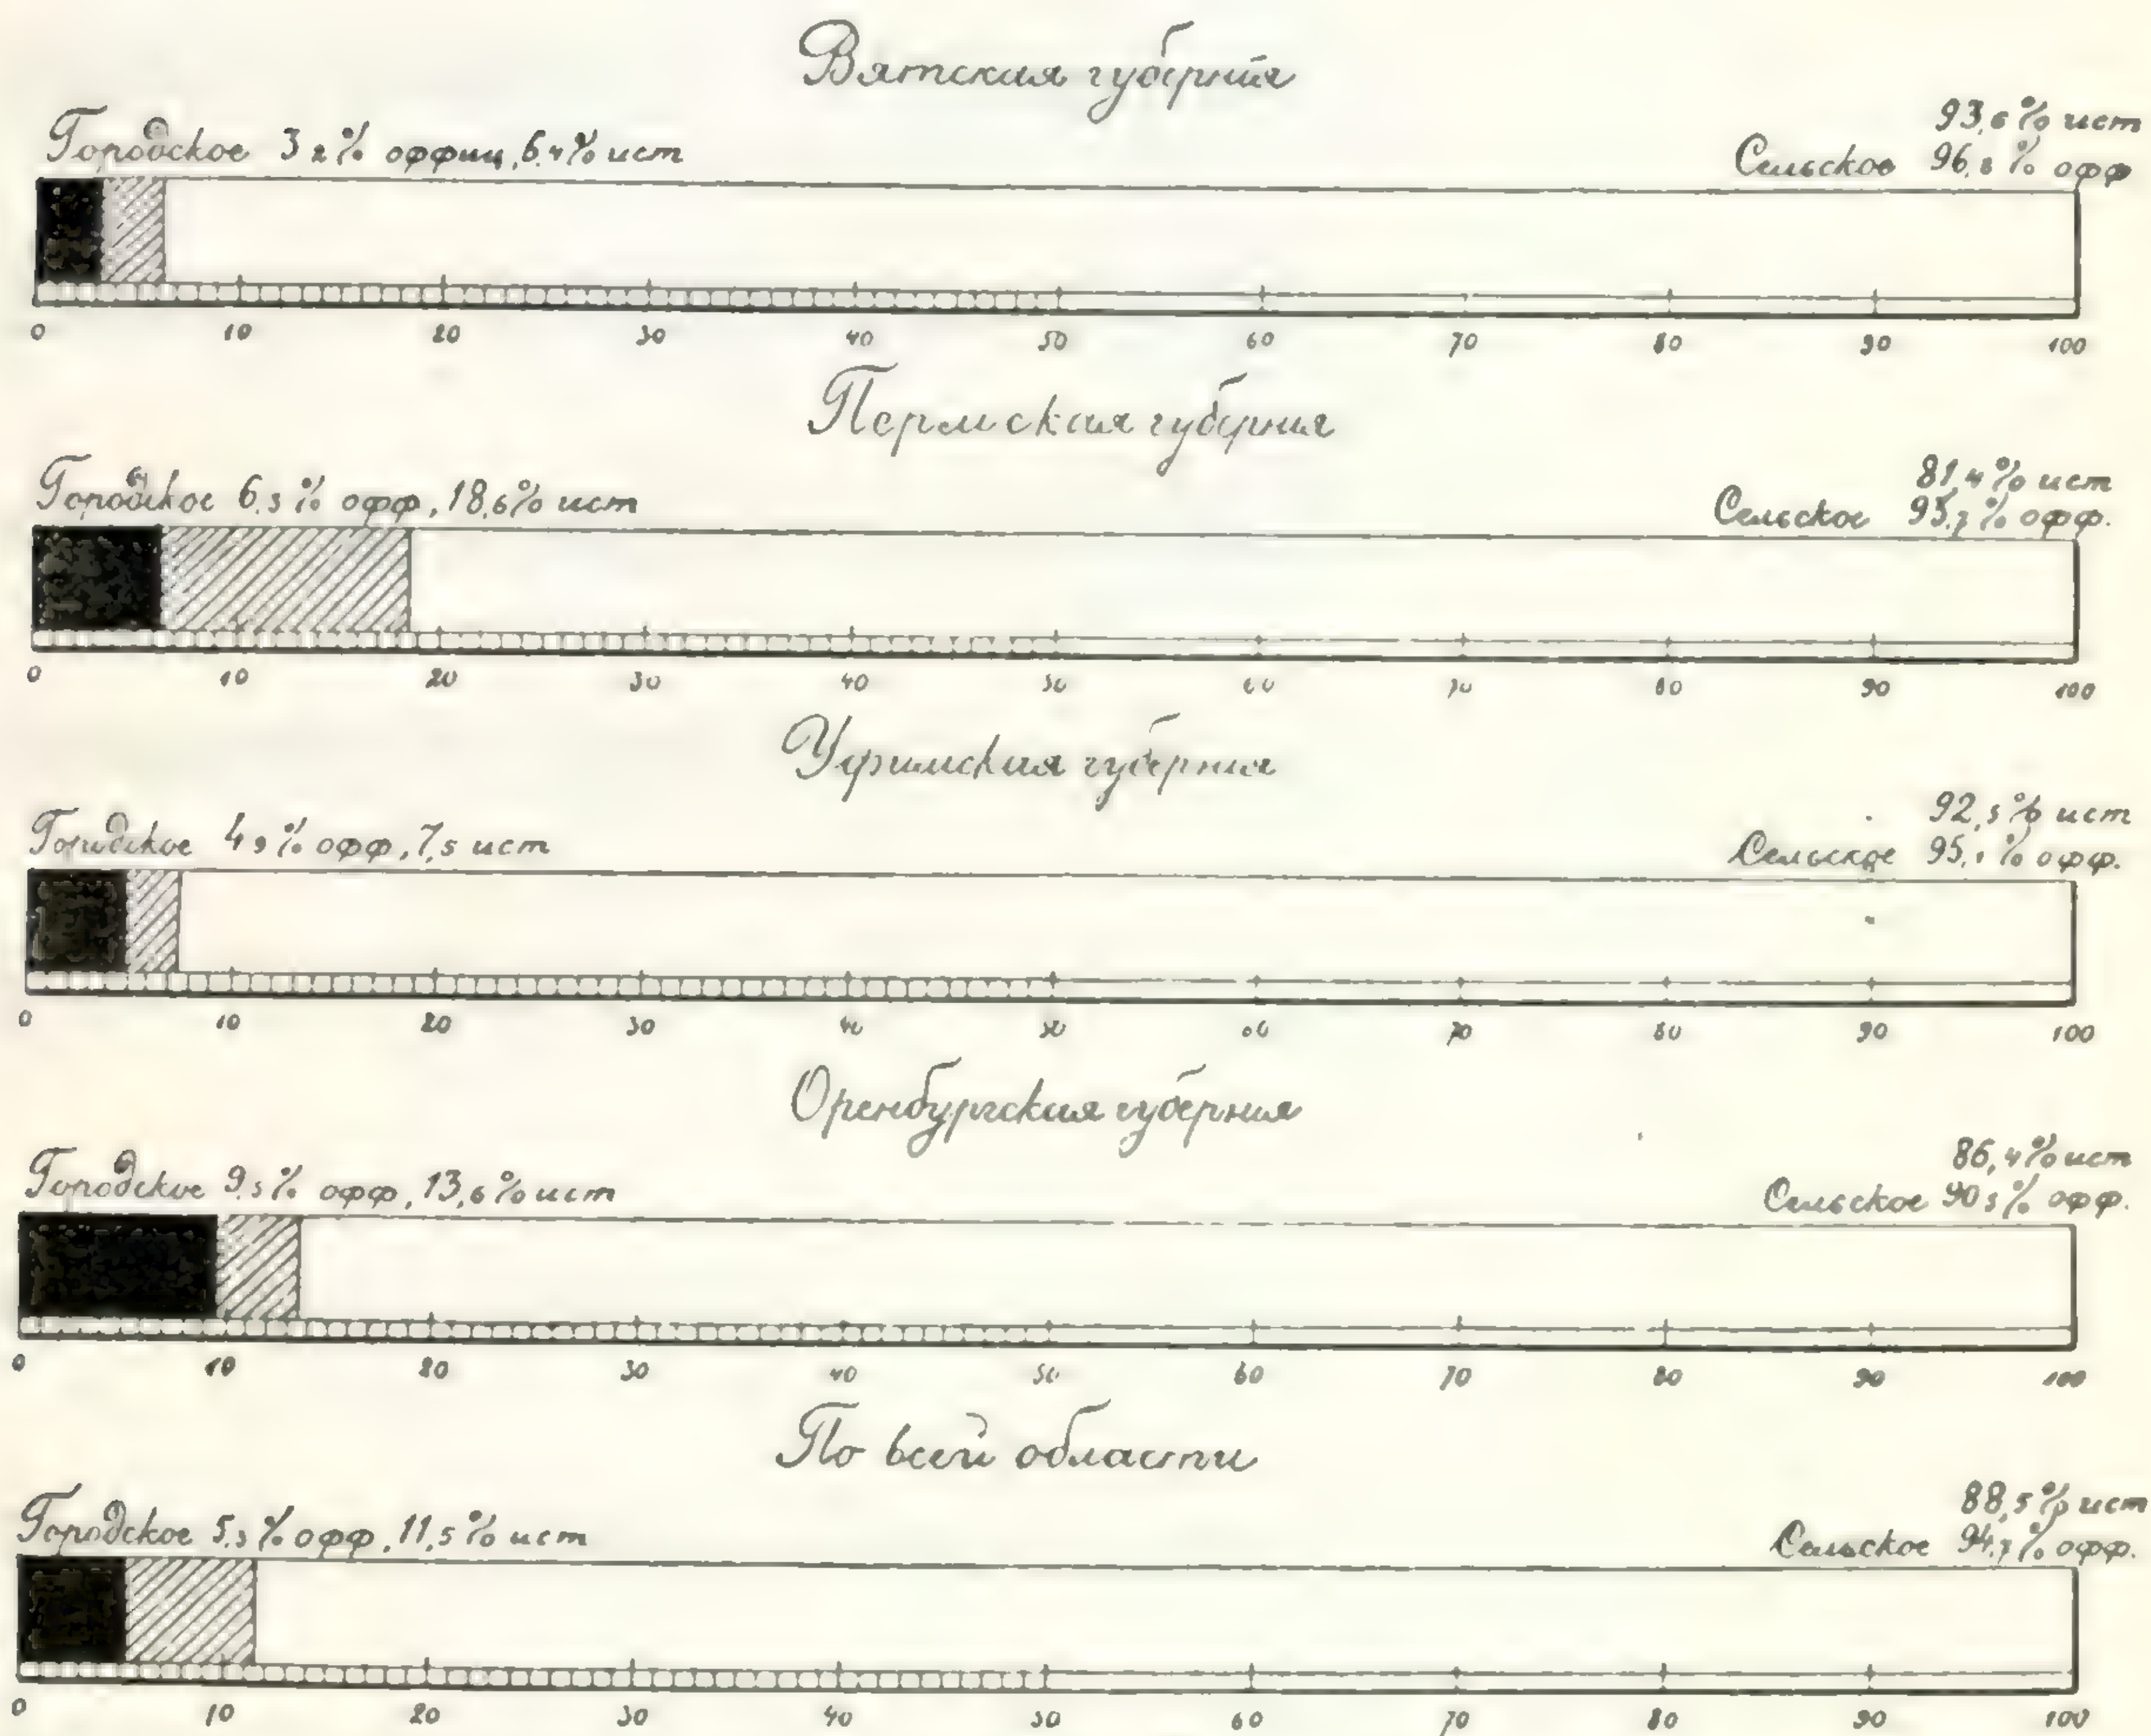 Вятская губерния
93,6% ист
Городское 3,2% оффиц, 6,4% ист
Сельское 96,8% офф
0 10 20 30 40 50 60 70 80 90 100
Пермская губерния
81,4% ист
Городское 6,3% офф, 18,6% ист
Сельское 93,7% офф.
0 10 20 30 40 50 60 70 80 90 100
Уфимская губерния
92,5% ист
Городское 4,9% офф, 7,5 ист
Сельское 95,1% офф.
0 10 20 30 40 50 60 70 80 90 100
Оренбургская губерния
86,4% ист
Городское 9,5% офф, 13,6% ист
Сельское 90,5% офф.
0 10 20 30 40 50 60 70 80 90 100
По всей области
88,5% ист
Городское 5,3% офф, 11,5% ист
Сельское 94,7% офф.
0 10 20 30 40 50 60 70 80 90 100